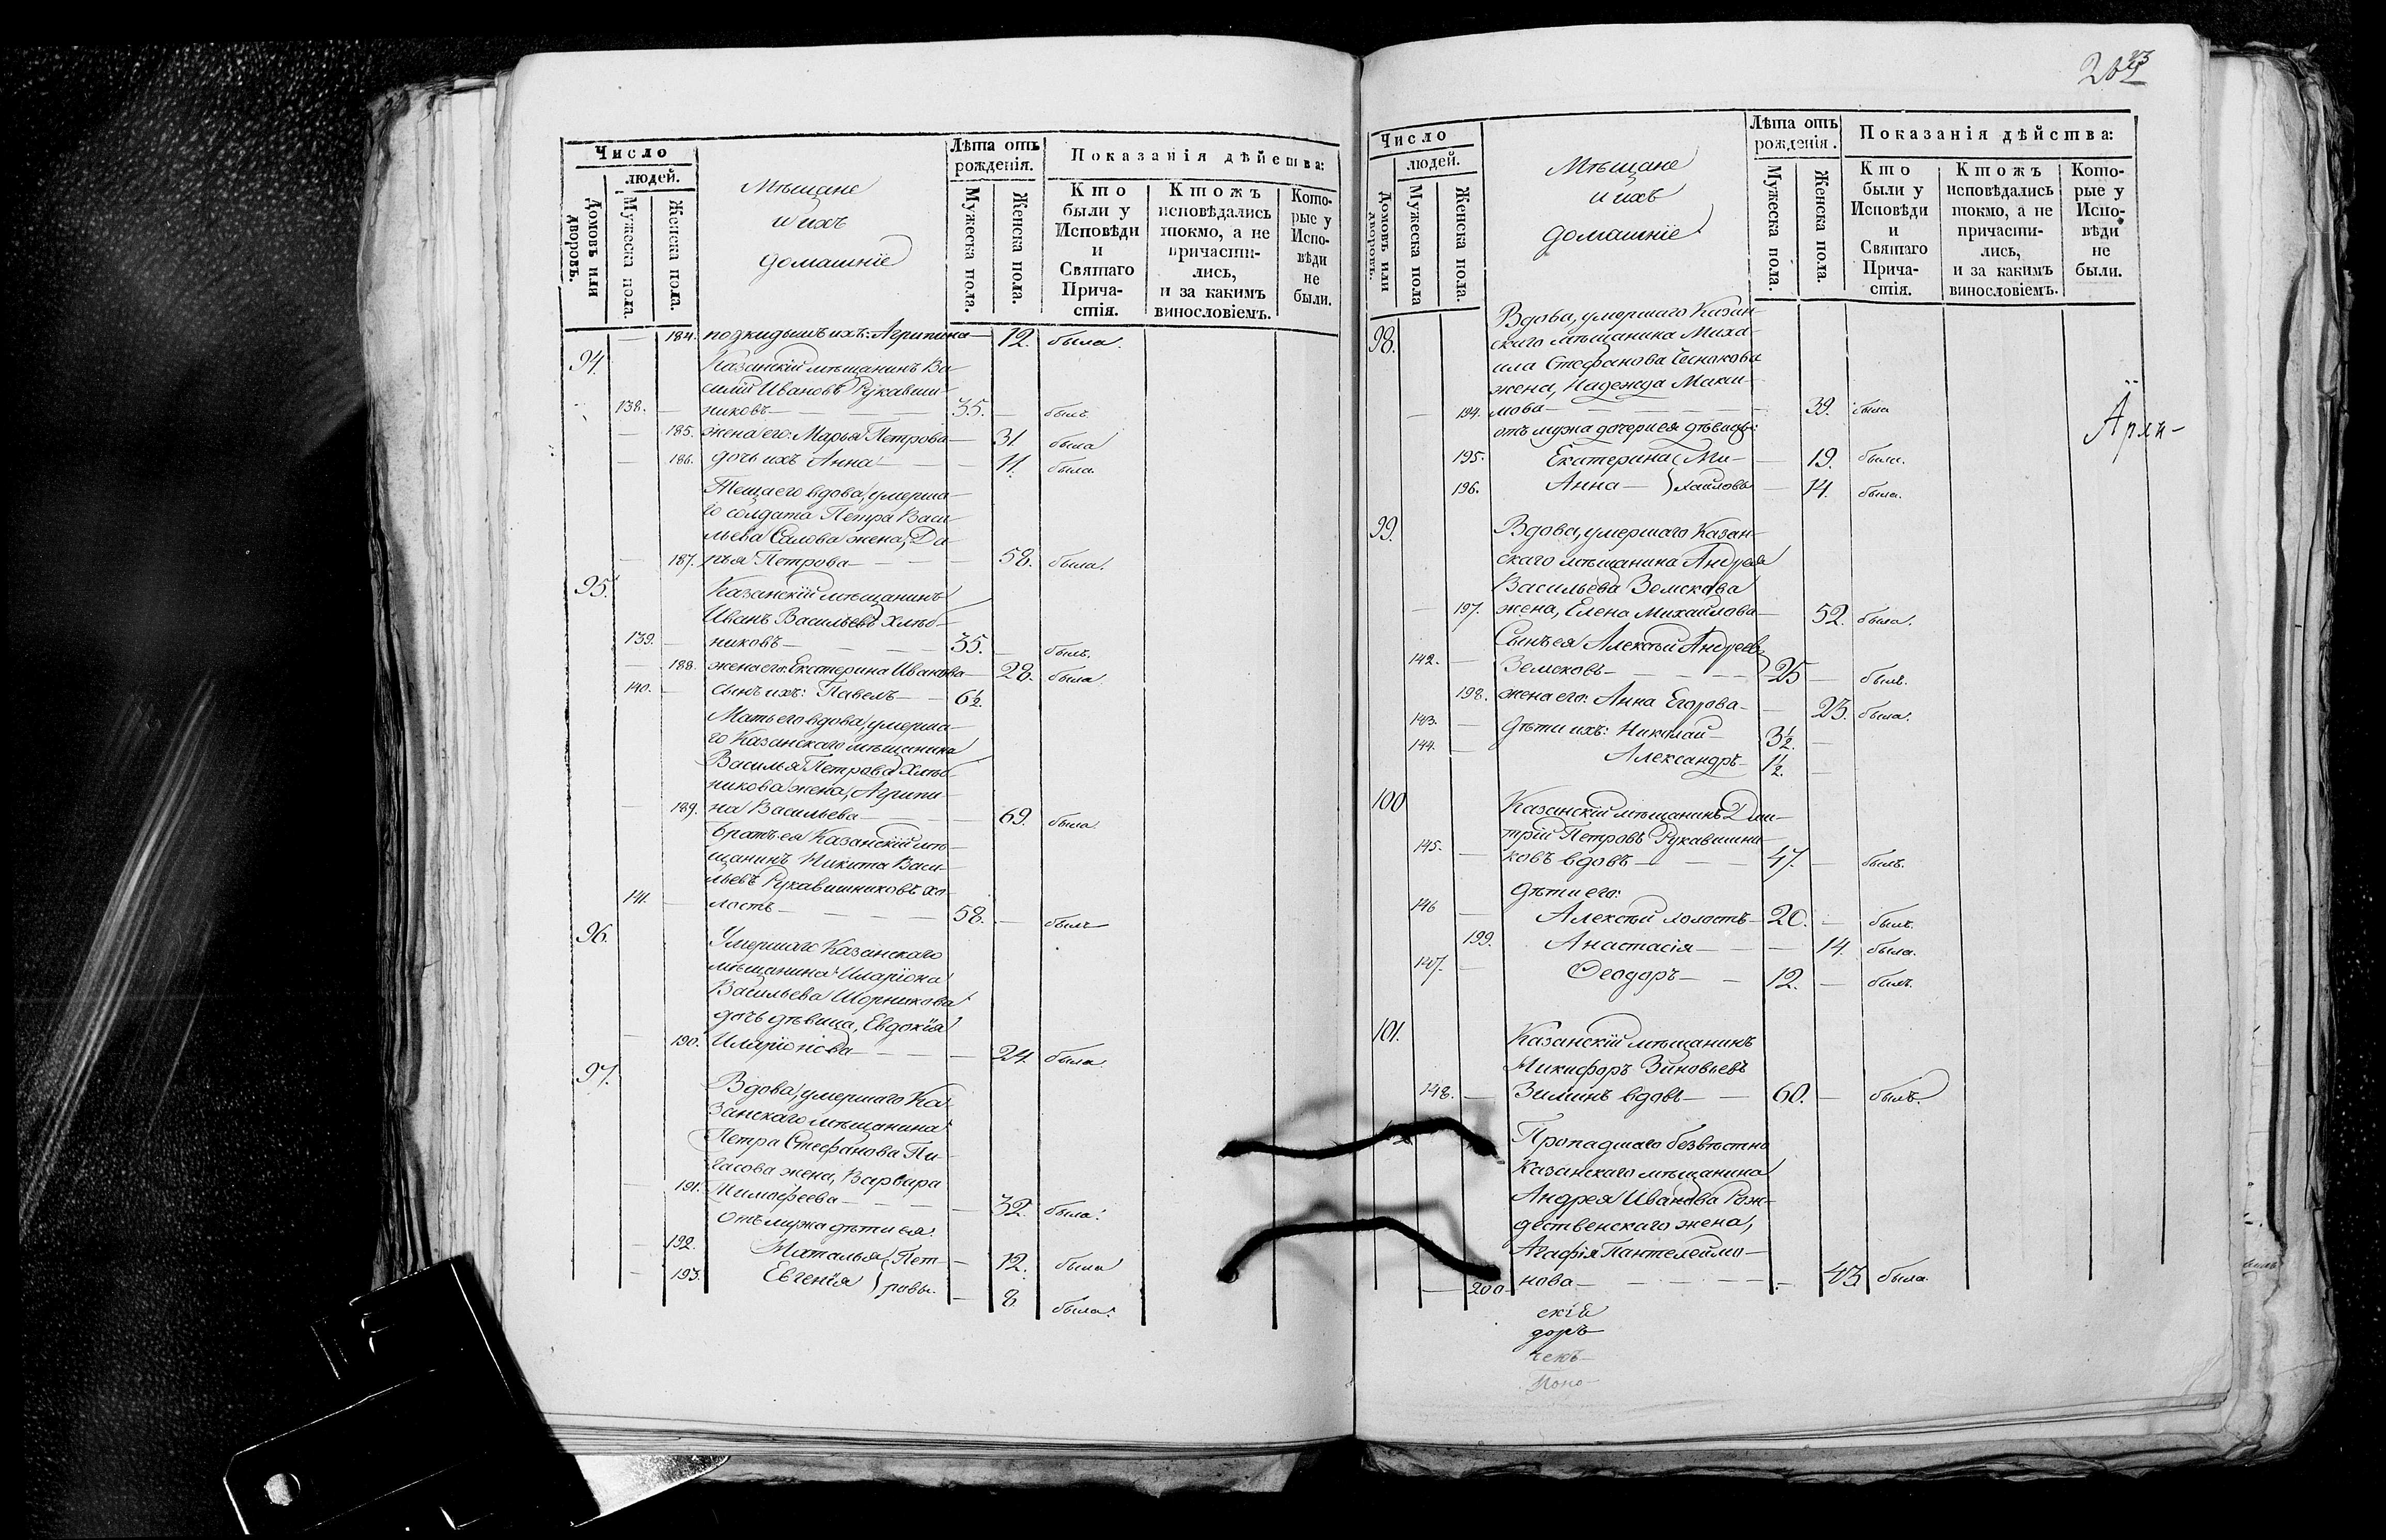 Число
людей.
Домовъ или дворовъ.
Мужеска пола.
Женска пола.
Мѣщане
и ихъ
домашніе
Лѣта отъ
рожденія.
Мужеска пола.
Женска пола.
Показанія дѣйства:
Кто
были у
Исповѣди
и
Святаго
Прича-
стія.
Ктожъ
исповѣдались
токмо, а не
причасти-
лись,
и за какимъ
винословіемъ.
Кото-
рые у
Испо-
вѣди
не
были.
184. подкидышъ ихъ: Агрипина 12. была.
94. Казанскій мѣщанинъ Ва-
силій Ивановъ Рукавиш-
138. никовъ 35. былъ.
185. жена его: Марья Петрова 31 была
186. дочь ихъ Анна 11. была.
Теща его вдова, умерша-
го солдата Петра Васи-
льева Салова жена, Да-
187. рья Петрова 58. была.
95. Казанскій мѣщанинъ
Иванъ Васильевъ Хлѣб-
139. никовъ 35. былъ.
188. жена его: Екатерина Иванова 28. была.
140. сынъ ихъ: Павелъ 6½.
Мать его вдова, умерша-
го Казанскаго мѣщанина
Василья Петрова Хлѣб-
никова жена, Агрипи-
189. на Васильева 69. была.
братъ ея Казанскій мѣ-
щанинъ Никита Васи-
льевъ Рукавишниковъ хо-
141. лостъ 58. былъ
96. Умершаго Казанскаго
мѣщанина Иларіона
Васильева Шорникова
дочь дѣвица, Евдокія
190. Иларіонова 24. была
97. Вдова, умершаго Ка-
занскаго мѣщанина
Петра Стефанова Пи-
гасова жена, Варвара
191. Тимофеева 32. была.
Отъ мужа дѣти ея:
192. Наталья Пет- 12. была
193. Евгенія ровы. 8 была.
Число
людей.
Домовъ или дворовъ.
Мужеска пола
Женска пола.
Мѣщане
и ихъ
домашніе
Лѣта отъ
рожденія.
Мужеска пола.
Женска пола.
Показанія дѣйства:
Кто
были у
Исповѣди
и
Святаго
Прича-
стія.
Ктожъ
исповѣдались
токмо, а не
причасти-
лись,
и за какимъ
винословіемъ.
Кото-
рые у
Испо-
вѣди
не
были.
98. Вдова, умершаго Казан-
скаго мѣщанина Миха-
ила Стефанова Чеснокова
жена, Надежда Макси-
194. мова 39. была
отъ мужа дочери ея дѣвицы:
195. Екатерина Ми- 19. была.
196. Анна хайловы 14. была.
99. Вдова, умершаго Казан-
скаго мѣщанина Андрея
Васильева Земскова
197. жена, Елена Михайлова 52. была.
Сынъ ея Алексѣй Андреевъ
142. Земсковъ 25 былъ.
198. жена его: Анна Егорова 23. была.
143. Дѣти ихъ: Николай 3½.
144. Александръ 1½.
100 Казанскій мѣщанинъ Дми-
трій Петровъ Рукавишни-
145. ковъ вдовъ 47. былъ.
Дѣти его:
146 Алексѣй холостъ 20. былъ.
199. Анастасія 14. была.
147. Ѳеодоръ 12. былъ.
101. Казанскій мѣщанинъ
Никифоръ Зиновьевъ
148. Зиминъ вдовъ 60. былъ.
Пропадшаго безвѣстно
Казанскаго мѣщанина
Андрея Иванова Рож-
дественскаго жена,
Агафія Пантелеймо-
200 нова 43 была.
скія